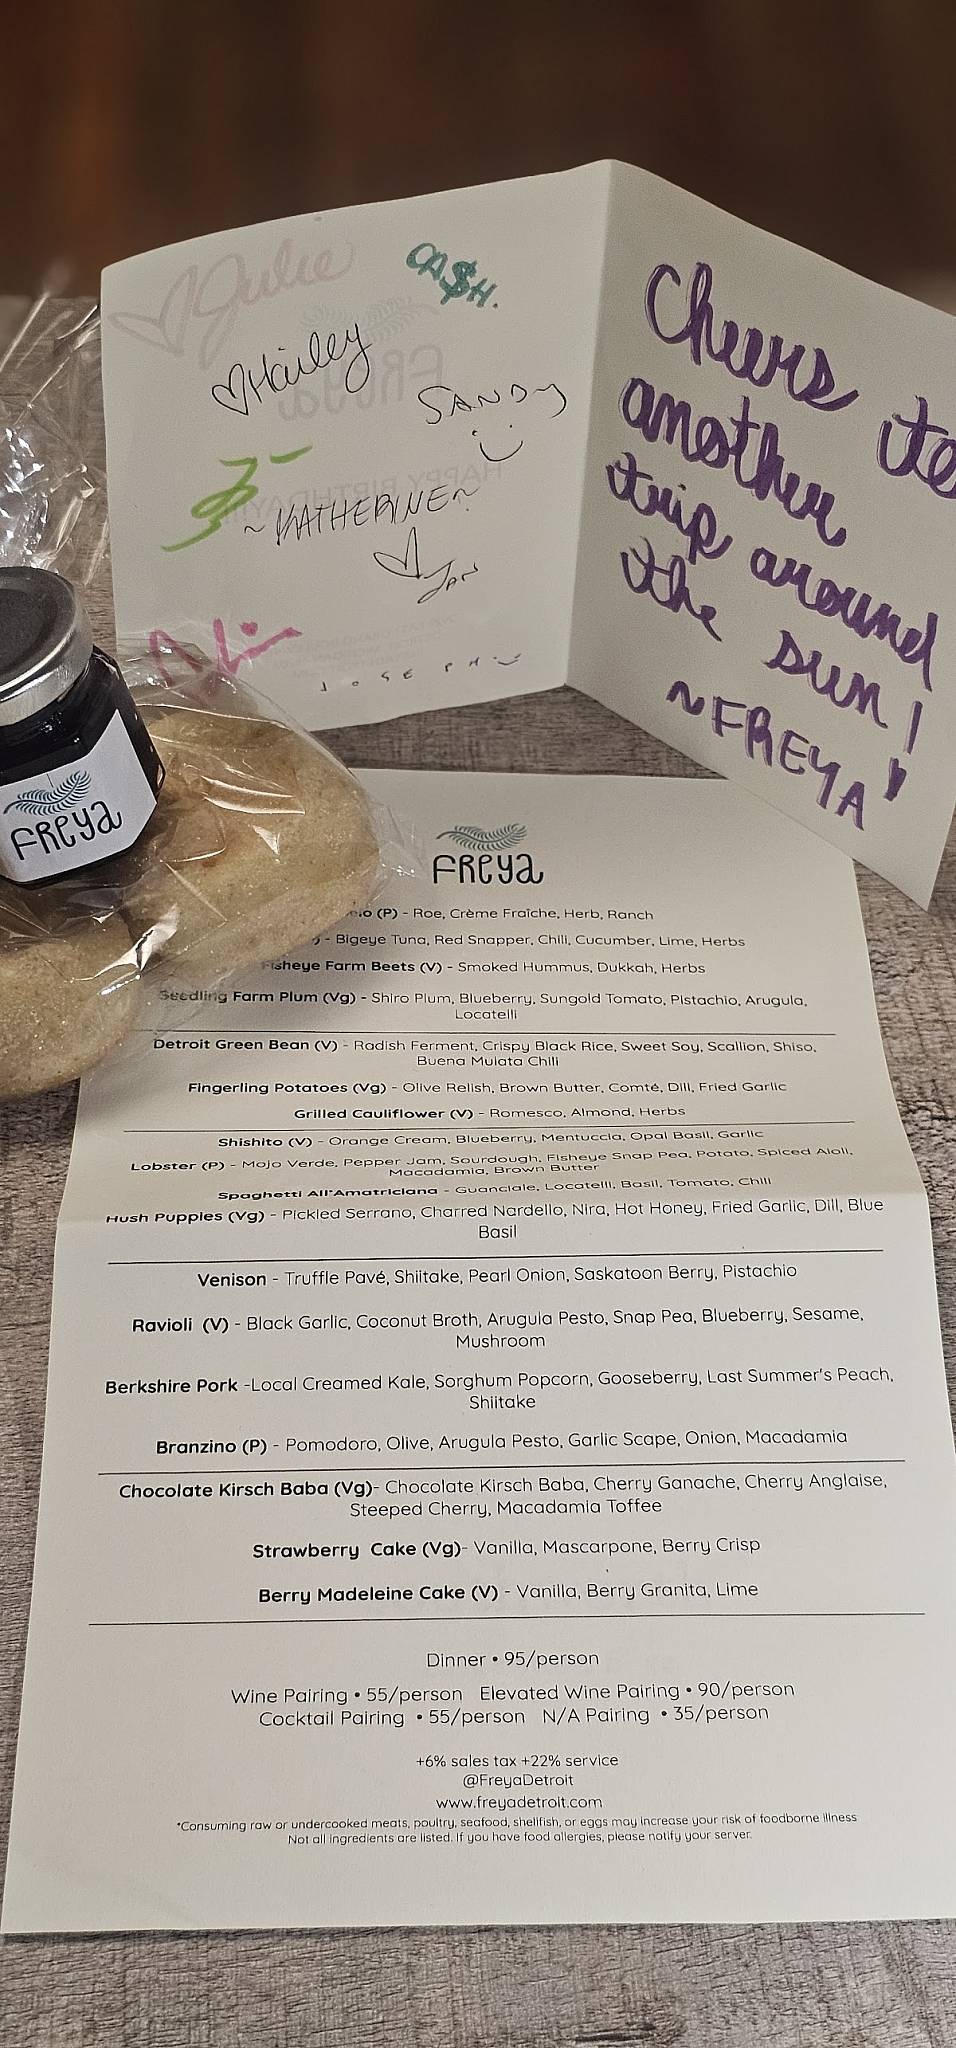 Julie
CA$H.
Hailey
SANDY
~KATHERINE~
JAN
JOSEPH
Cheers to
another
trip around
the sun!
~FREYA
FReya
FReya
(P) - Roe, Crème Fraîche, Herb, Ranch
- Bigeye Tuna, Red Snapper, Chili, Cucumber, Lime, Herbs
Fisheye Farm Beets (V) - Smoked Hummus, Dukkah, Herbs
Seedling Farm Plum (Vg) - Shiro Plum, Blueberry, Sungold Tomato, Pistachio, Arugula,
Locatelli
Detroit Green Bean (V) - Radish Ferment, Crispy Black Rice, Sweet Soy, Scallion, Shiso,
Buena Mulata Chili
Fingerling Potatoes (Vg) - Olive Relish, Brown Butter, Comté, Dill, Fried Garlic
Grilled Cauliflower (V) - Romesco, Almond, Herbs
Shishito (V) - Orange Cream, Blueberry, Mentuccia, Opal Basil, Garlic
Lobster (P) - Mojo Verde, Pepper Jam, Sourdough, Fisheye Snap Pea, Potato, Spiced Aioli,
Macadamia, Brown Butter
Spaghetti All'Amatriciana - Guanciale, Locatelli, Basil, Tomato, Chili
Hush Puppies (Vg) - Pickled Serrano, Charred Nardello, Nira, Hot Honey, Fried Garlic, Dill, Blue
Basil
Venison - Truffle Pavé, Shiitake, Pearl Onion, Saskatoon Berry, Pistachio
Ravioli (V) - Black Garlic, Coconut Broth, Arugula Pesto, Snap Pea, Blueberry, Sesame,
Mushroom
Berkshire Pork -Local Creamed Kale, Sorghum Popcorn, Gooseberry, Last Summer's Peach,
Shiitake
Branzino (P) - Pomodoro, Olive, Arugula Pesto, Garlic Scape, Onion, Macadamia
Chocolate Kirsch Baba (Vg)- Chocolate Kirsch Baba, Cherry Ganache, Cherry Anglaise,
Steeped Cherry, Macadamia Toffee
Strawberry Cake (Vg)- Vanilla, Mascarpone, Berry Crisp
Berry Madeleine Cake (V) - Vanilla, Berry Granita, Lime
Dinner • 95/person
Wine Pairing • 55/person Elevated Wine Pairing • 90/person
Cocktail Pairing • 55/person N/A Pairing • 35/person
+6% sales tax +22% service
@FreyaDetroit
www.freyadetroit.com
*Consuming raw or undercooked meats, poultry, seafood, shellfish, or eggs may increase your risk of foodborne illness
Not all ingredients are listed. If you have food allergies, please notify your server.